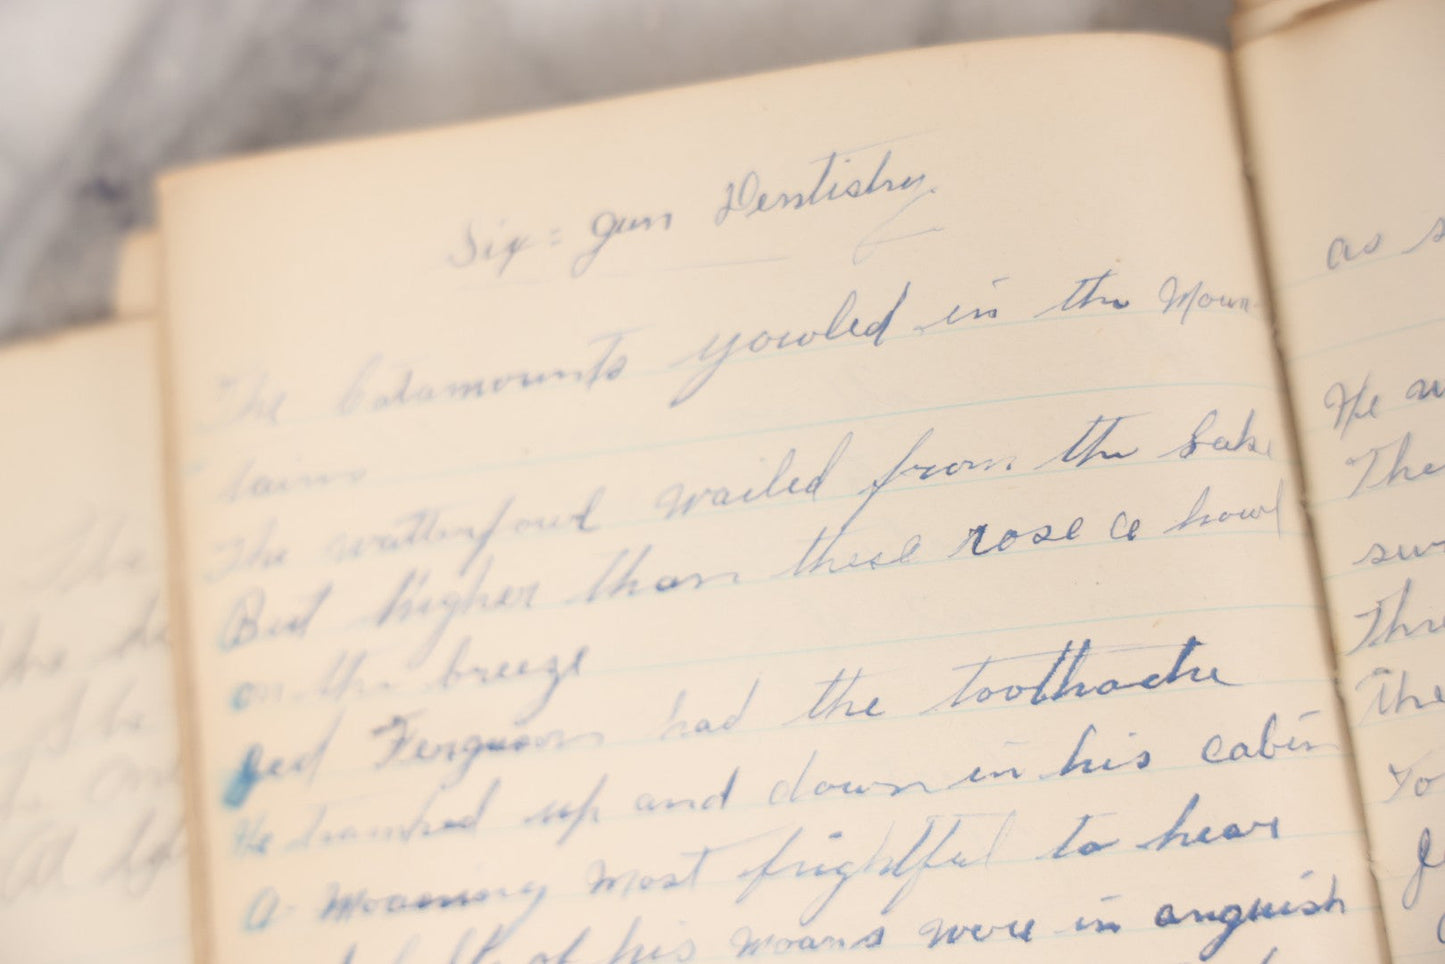 Six=gun Dentistry
The Catamounts yowled in the Moun-
tains
The watterfowl wailed from the Lake
But higher than these rose a howl
on the breeze
Jed Ferguson had the toothache
He tramped up and down in his cabin
A moaning most frightful to hear
half of his moans were in anguish
as
He
The
The
At
as s
He w
The
sw
Thre
The
To